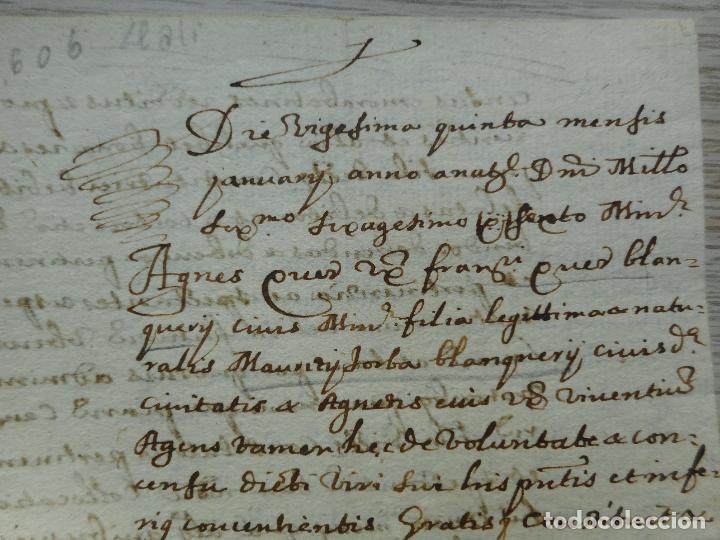 606
Die vigesima quinta mensis
januarij anno a nat. Dni Millo
sex.mo sexagesimo Min.
Agnes Quer ux. fran. Quer blan-
querij civis Min. filia legittima et natu-
ralis Mauritij Jorba blanquerij civis d.
civitatis et Agnetis eius ux. viventiu
Agens tamen hec de voluntate et con-
sensu dicti viri sui his pntis et infe-
rius consentientis Gratis
todocoleccion